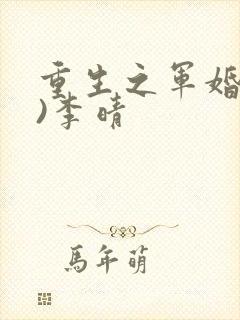 重生之军婚
)李晴
马年萌